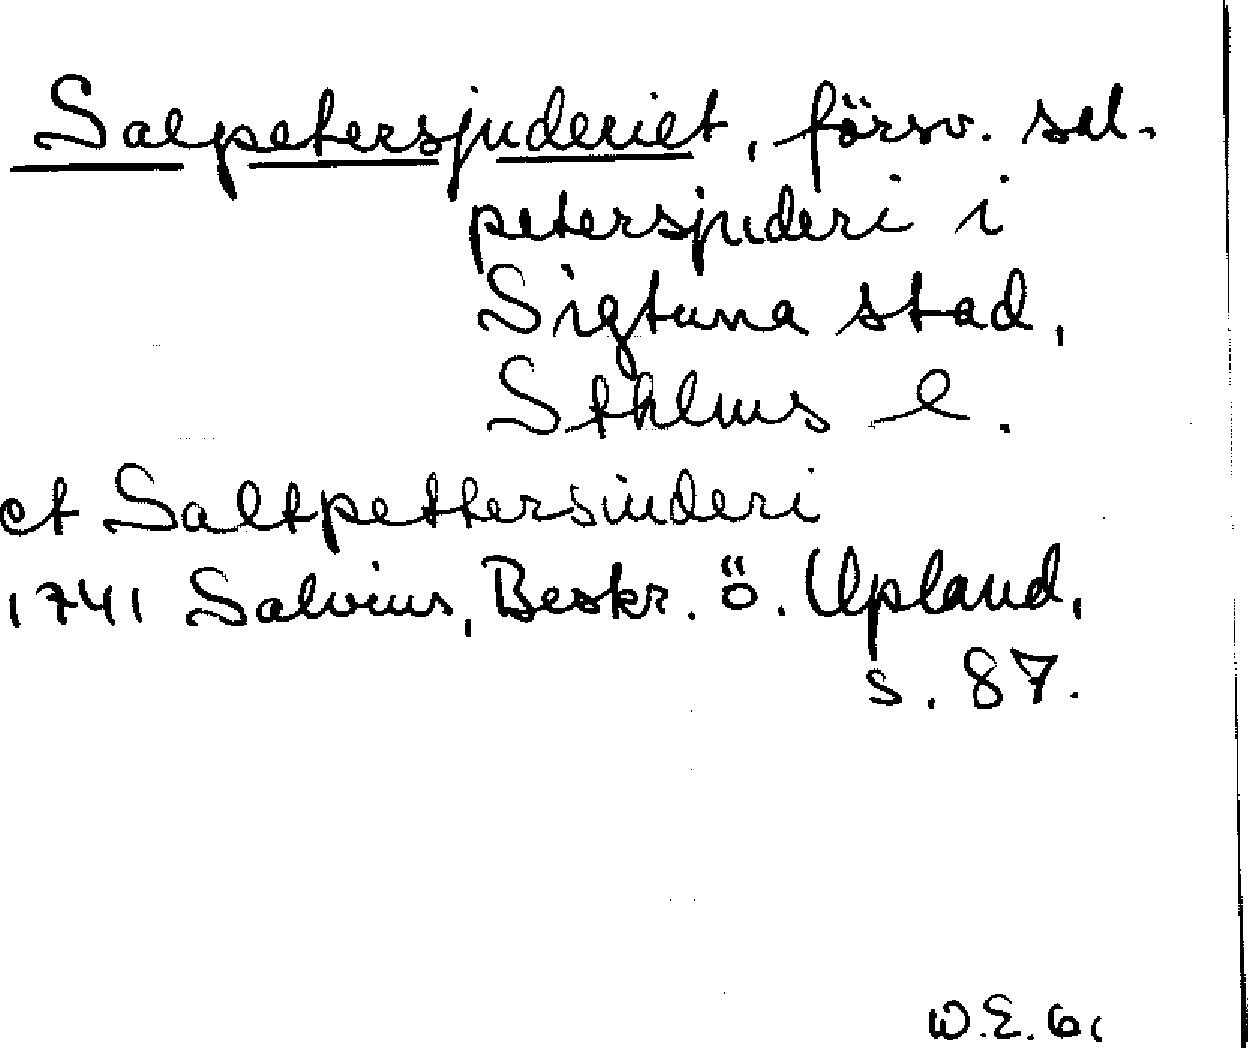 Salpetersjuderiet, försv. sal-
petersjuderi i
Sigtuna stad,
Sthlms l.
et Saltpettersiuderi
1741 Salvius, Beskr. ö. Upland,
s. 87.
W.E. 61